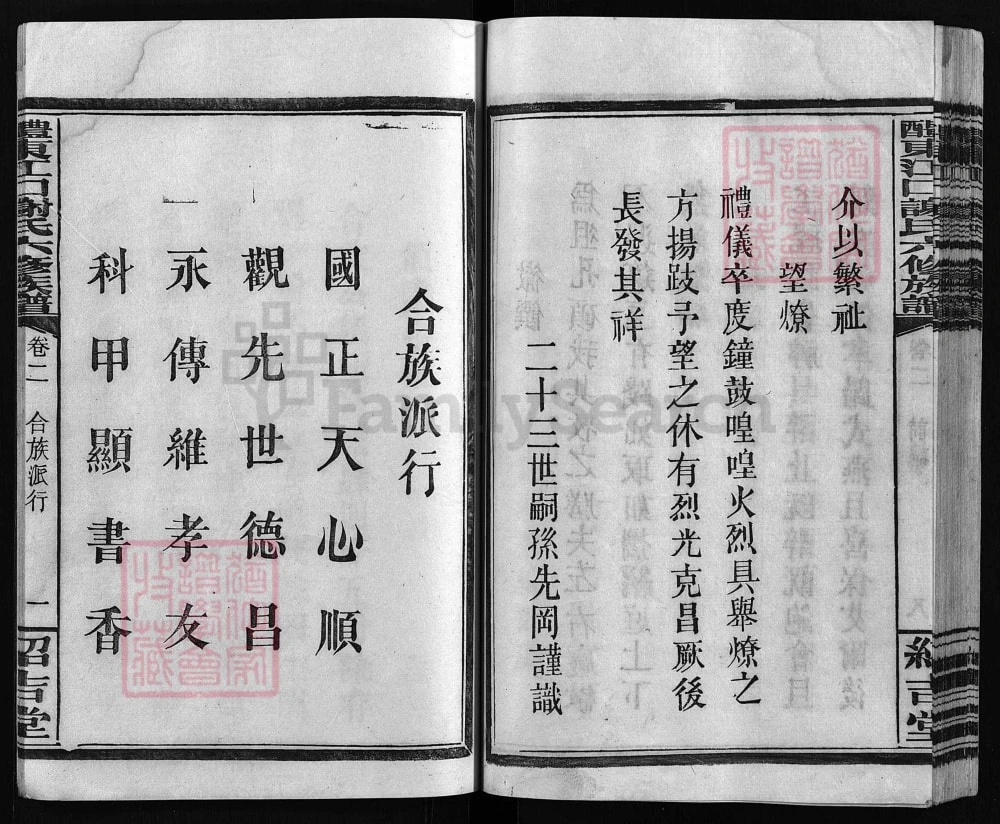 醴東江口謝氏六修族譜
介以繁祉
望燎
禮儀卒度鐘鼓喤喤火烈具舉燎之
方揚跂予望之休有烈光克昌厥後
長發其祥
二十三世嗣孫先岡謹識
合族派行
國正天心順
觀先世德昌
永傳維孝友
科甲顯書香
醴東江口謝氏六修族譜
卷二
合族派行
二
紹吉堂
FamilySearch